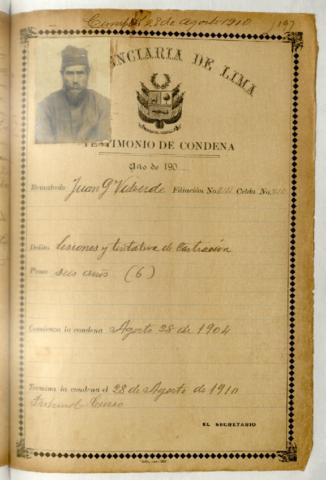 Cumple 28 de Agosto 1910
197
NCIARIA DE LIMA
TESTIMONIO DE CONDENA
Año de 190
Rematado Juan G Valverde Filiación No. Celda No.
Delito lesiones y tentativa de Castración
Pena seis años (6)
Comienza la condena Agosto 28 de 1904
Termina la condena el 28 de Agosto de 1910
Tribunal Cuzco
EL SECRETARIO